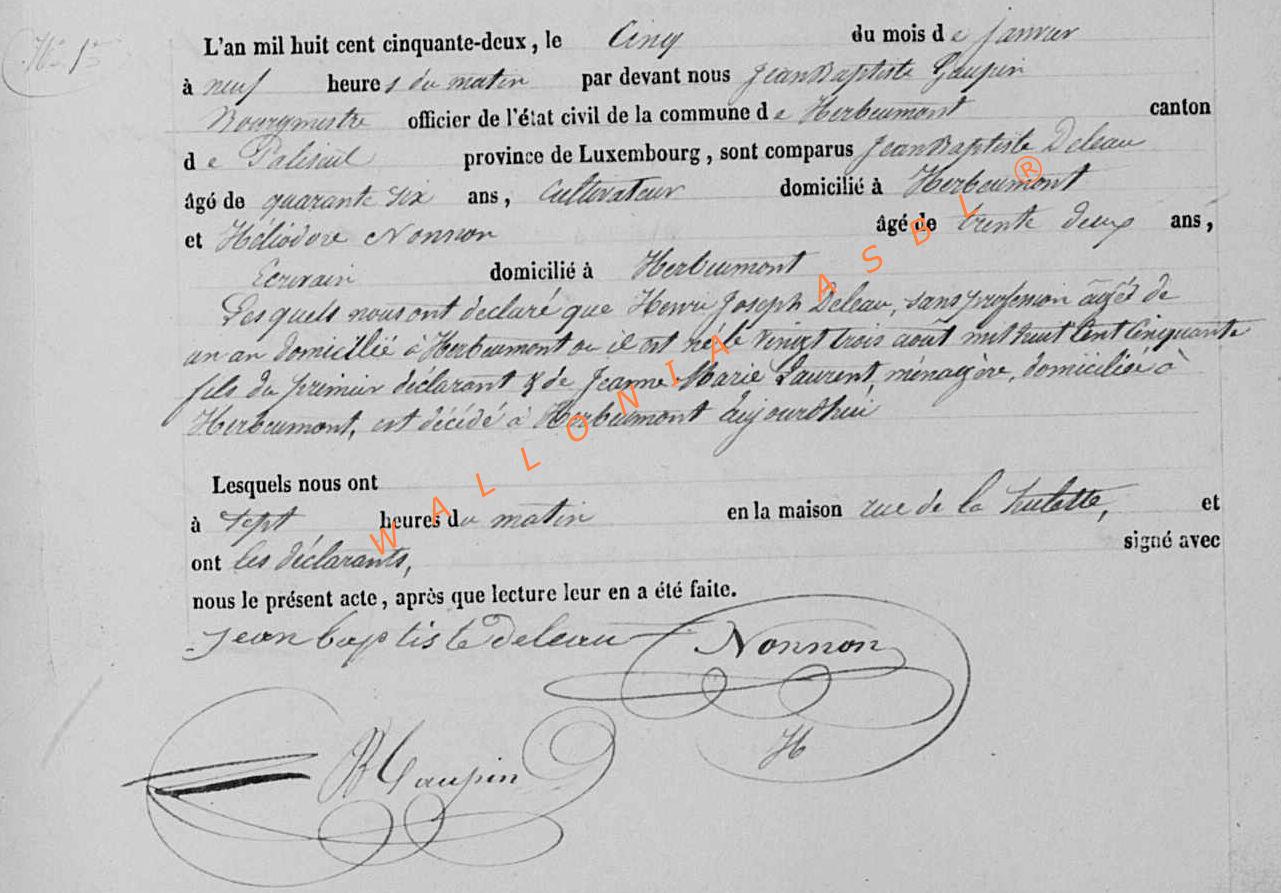 N° 1er
L'an mil huit cent cinquante-deux, le Cinq du mois de janvier
à neuf heures du matin par devant nous Jean Baptiste Gaupin
Bourgmestre officier de l'état civil de la commune de Herbeumont canton
de Paliseul province de Luxembourg, sont comparus Jean Baptiste Deleau
âgé de quarante six ans, Cultivateur domicilié à Herbeumont
et Héliodore Nonnon âgé de trente deux ans,
Ecrivain domicilié à Herbeumont
Lesquels nous ont déclaré que Henri Joseph Deleau, sans profession âgés de
un an domicilié à Herbeumont ou il est né le vingt trois août mil huit cent cinquante
fils du premier déclarant & de Jeanne Marie Laurent, ménagère, domiciliée à
Herbeumont, est décédé à Herbeumont aujourdhui
Lesquels nous ont
à sept heures du matin en la maison rue de la et
ont les déclarants, signé avec
nous le présent acte, après que lecture leur en a été faite.
jean baptiste deleau Nonnon
H
Gaupin
WALLONIA ASBL ®